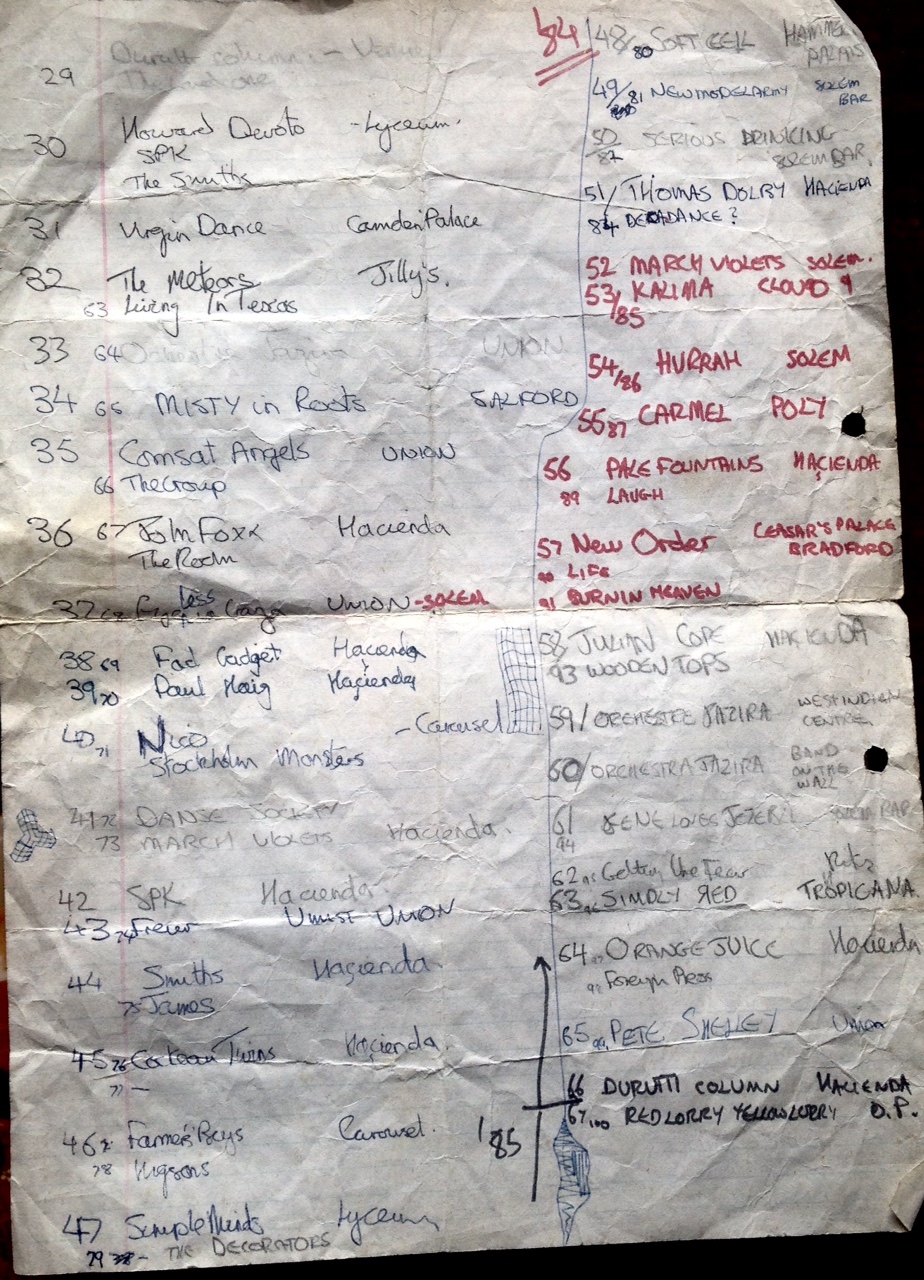 29 Durutti Column - Venue
30 Howard Devoto - Lyceum.
SPK
The Smiths
31 Virgin Dance Camden Palace
32 The Meteors Jilly's.
63 Living In Texas
33 64 UNION
34 65 MISTY in Roots SALFORD
35 Comsat Angels UNION
66 The Group
36 67 John Foxx Hacienda
The Room
37 68 UNION - SOLEM
38 69 Fad Gadget Haçienda
39 70 Paul Haig Haçienda
40 71 Nico - Carousel
Stockholm Monsters
41 72 DANSE SOCIETY
73 MARCH VIOLETS Hacienda.
42 SPK Hacienda
43 74 Freur UMIST UNION
44 Smiths Haçienda
75 James
45 76 Cocteau Twins Haçienda.
77 -
46 Farmers Boys Carousel.
78 Higsons
47 Simple Minds Lyceum
79 - THE DECORATORS
84
48/80 SOFT CELL HAMMER PALAIS
49/81 NEW MODEL ARMY SOLEM BAR
50/82 SERIOUS DRINKING SOLEM BAR.
51/ THOMAS DOLBY HACIENDA
84 DECADANCE?
52 MARCH VIOLETS SOLEM.
53/85 KALIMA CLOUD 9
54/86 HURRAH SOLEM
55 87 CARMEL POLY
56 PALE FOUNTAINS HAÇIENDA
89 LAUGH
57 New Order CEASAR'S PALACE BRADFORD
90 LIFE
91 BURNIN HEAVEN
58 JULIAN COPE HACIENDA
93 WOODENTOPS
59/ ORCHESTRE JAZIRA WEST INDIAN CENTRE
60/ ORCHESTRA JAZIRA BAND ON THE WALL
61 GENE LOVES JEZEBEL SOLEM BAR
94
62 95 Getting the Fear Ritz
63 96 SIMPLY RED TROPICANA
64 97 ORANGE JUICE Hacienda
98 Foreign Press
65 99 PETE SHELLEY Union
66 DURUTTI COLUMN HACIENDA
67 100 RED LORRY YELLOW LORRY O.P.
1/85